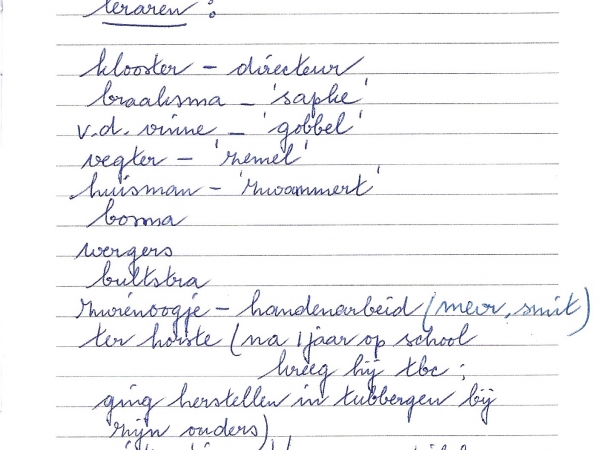 leraren :
klooster - directeur
braaksma - 'sapke'
v.d. vinne - 'gobbel'
vegter - 'remel'
huisman - 'zwammert'
bosma
wergers
bultstra
- handenarbeid (mevr. smit)
ter horste (na 1 jaar op school
kreeg hij tbc ;
ging herstellen in tubbergen bij
zijn ouders)